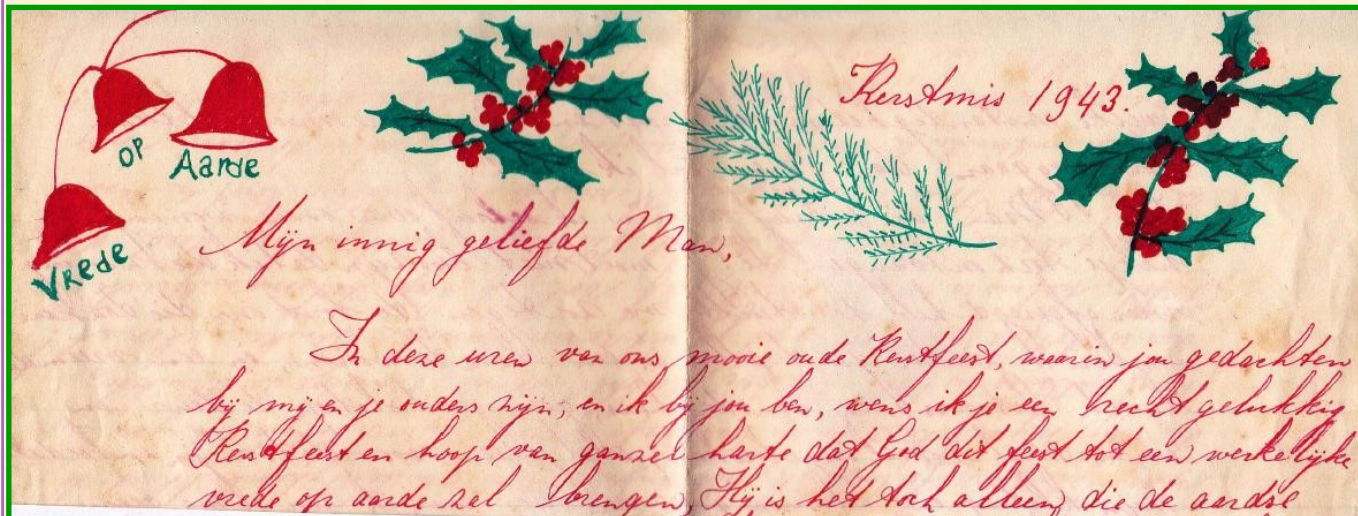 Kerstmis 1943.
OP Aarde
Vrede
Mijn innig geliefde Man,
In deze uren van ons mooie oude Kerstfeest, waarin jou gedachten
bij mij en je ouders zijn, en ik bij jou ben, wens ik je een recht gelukkig
Kerstfeest en hoop van ganzer harte dat God dit feest tot een werkelijke
vrede op aarde zal brengen. Hij is het toch alleen, die de aardse